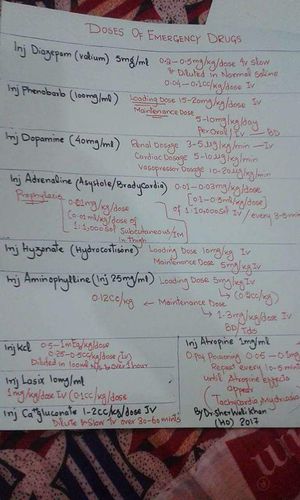 DOSES OF EMERGENCY DRUGS
Inj Diazepam (valium) 5mg/ml 0.2-0.5mg/kg/dose Iv slow
& Diluted in Normal Saline
0.04-0.1cc/kg/dose Iv
Inj Phenobarb (100mg/ml) Loading Dose 15-20mg/kg/dose Iv
Maintenance Dose
5-10mg/kg/day
Per Oral / Iv BD
Inj Dopamine (40mg/ml) Renal Dosage 3-5µg/kg/min — Iv
Cardiac Dosage 5-10µg/kg/min
Vasopressor Dosage 10-20µg/kg/min
Inj Adrenaline (Asystole/Bradycardia) 0.01-0.03mg/kg/dose
Prophylaxis 0.01mg/kg/dose [0.1-0.3ml/kg/dose]
[0.01ml/kg/dose of of 1:10,000 sol Iv / every 3-5
1:1,000 sol Subcutaneous/Im
in Thigh
Inj Hyzonate (Hydrocortisone) Loading Dose 10mg/kg Iv
Maintenance Dose 5mg/kg Iv
Inj Aminophylline (Inj 25mg/ml) Loading Dose 5mg/kg Iv
(0.2cc/kg)
0.12cc/kg ← Maintenance Dose
1-3mg/kg/dose Iv
BD/TDS
Inj Kcl 0.5-1mEq/kg/dose
0.25-0.5cc/kg/dose (Iv)
Diluted in over 1 hour
Inj Lasix 10mg/ml
1mg/kg/dose Iv (0.1cc/kg/dose
Inj Ca++ gluconate 1-2cc/kg/dose Iv
Dilute & slow Iv over 30-60 mints
Inj Atropine 1mg/ml
O.P Poisoning 0.05-0.1mg
Repeat every 10-5 min
until Atropine effects
appear
(Tachycardia, Mydriasis
By Dr. Sher Wali Khan
(HO) 2017